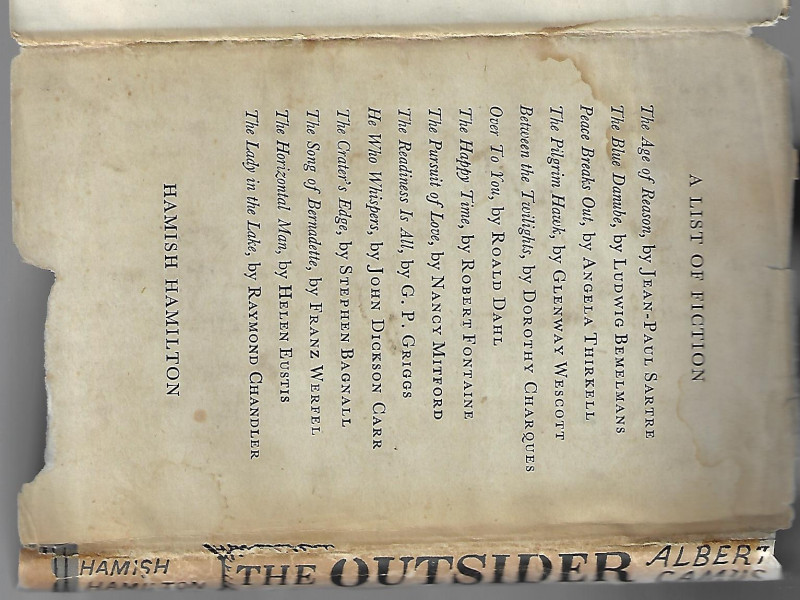 A LIST OF FICTION
The Age of Reason, by JEAN-PAUL SARTRE
The Blue Danube, by LUDWIG BEMELMANS
Peace Breaks Out, by ANGELA THIRKELL
The Pilgrim Hawk, by GLENWAY WESCOTT
Between the Twilights, by DOROTHY CHARQUES
Over To You, by ROALD DAHL
The Happy Time, by ROBERT FONTAINE
The Pursuit of Love, by NANCY MITFORD
The Readiness Is All, by G. P. GRIGGS
He Who Whispers, by JOHN DICKSON CARR
The Crater's Edge, by STEPHEN BAGNALL
The Song of Bernadette, by FRANZ WERFEL
The Horizonial Man, by HELEN EUSTIS
The Lady in the Lake, by RAYMOND CHANDLER
HAMISH HAMILTON
HAMISH
HAMILTON
THE OUTSIDER
ALBERT
CAMUS